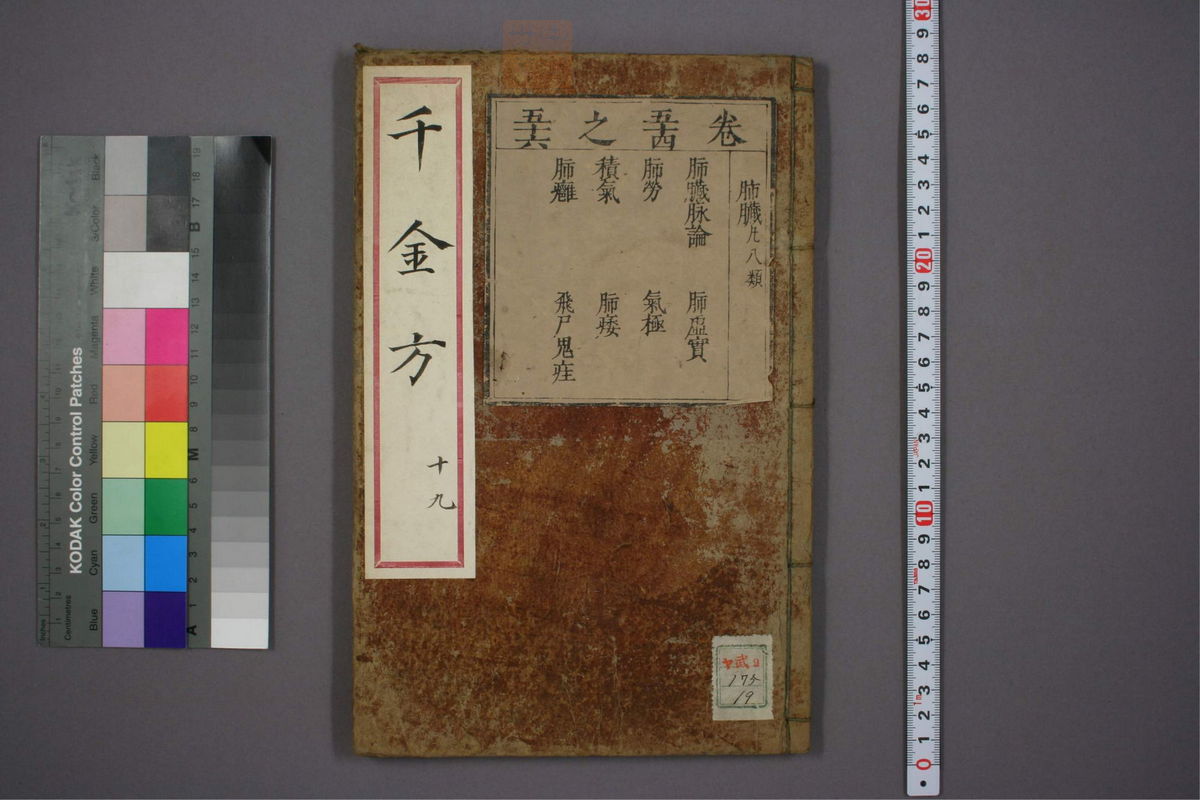 千金方
十九
卷五十四之五十六
肺臟凡八類
肺臟脉論 肺虛實
肺勞 氣極
積氣 肺痿
肺癰 飛尸鬼疰
ヤ武9
175
19
KODAK Color Control Patches
Blue
Cyan
Green
Yellow
Red
Magenta
White
3/Color
Black
Inches
Centimetres
A 1 2 3 4 5 6 M 8 9 10 11 12 13 14 15 B 17 18 19
0 1 2 3 4 5 6 7 8 9 10 1 2 3 4 5 6 7 8 9 20 1 2 3 4 5 6 7 8 9 30
1m
JAPAN